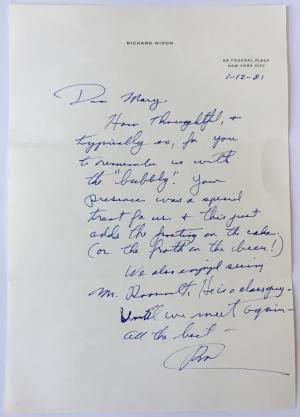 RICHARD NIXON
26 FEDERAL PLAZA
NEW YORK CITY
1-12-81
Dear Mary,
How thoughtful, &
typically so, for you
to remember us with
the "bubbly". Your
presence was a special
treat for us & this just
adds the frosting on the cake.
(or the froth on the beer!)
We also enjoyed seeing
Mr. Roosevelt. He is a class guy -
Until we meet again -
all the best -
RN